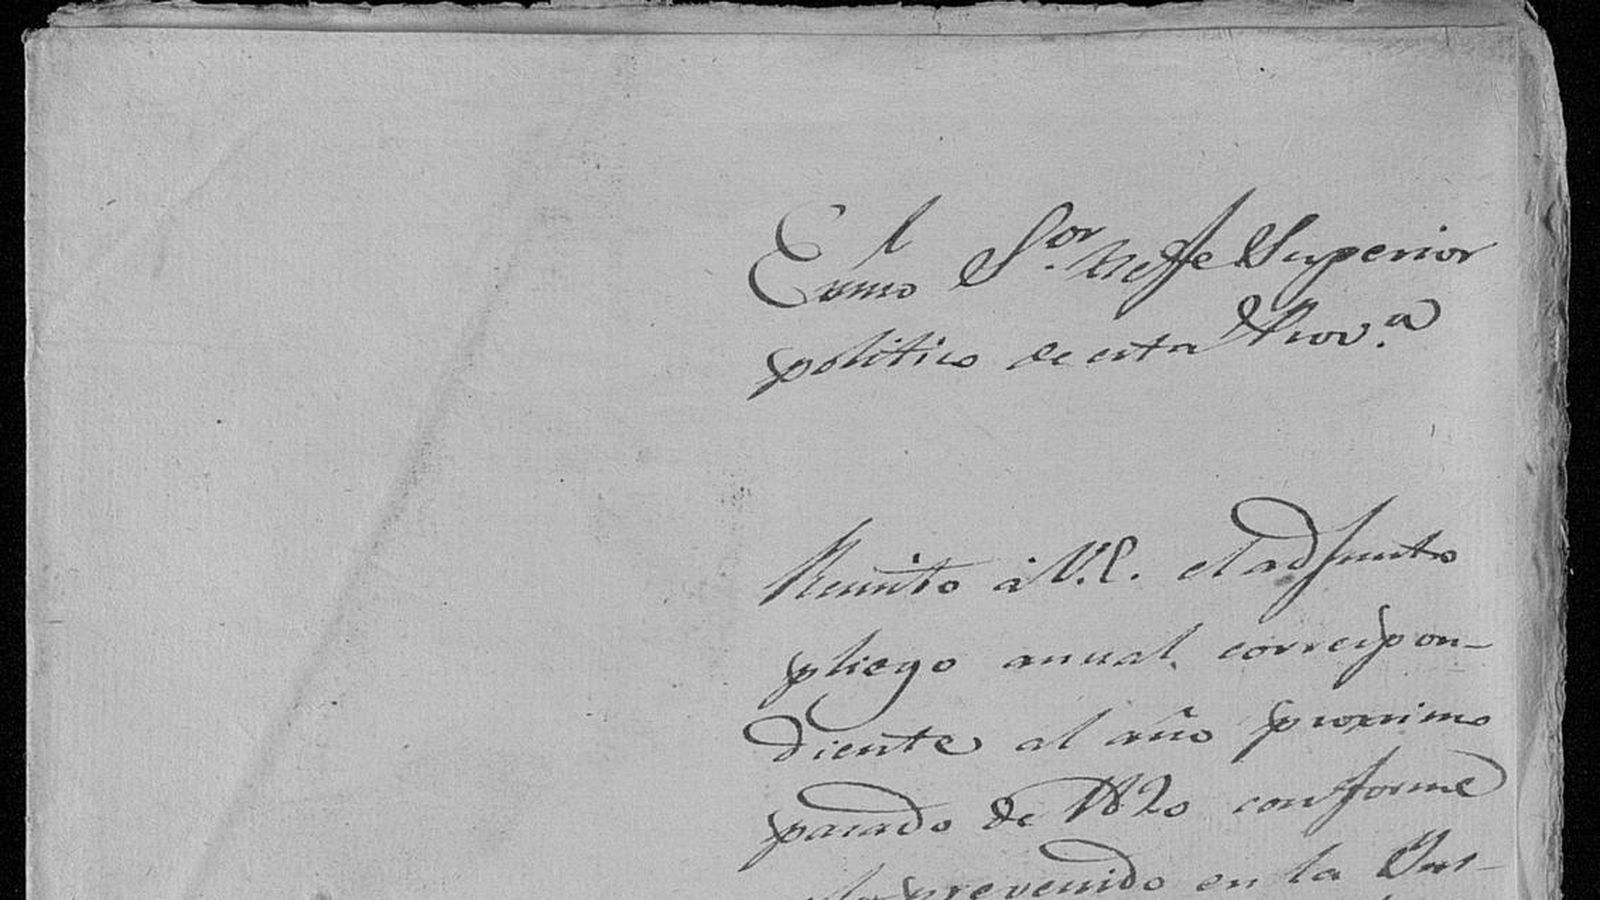 Exmo Sor. Xefe Superior
politico de esta Prov.a
Remito á V.E. el adjunto
pliego anual correspon-
diente al año proximo
pasado de 1820 conforme
prevenido en la Ins-